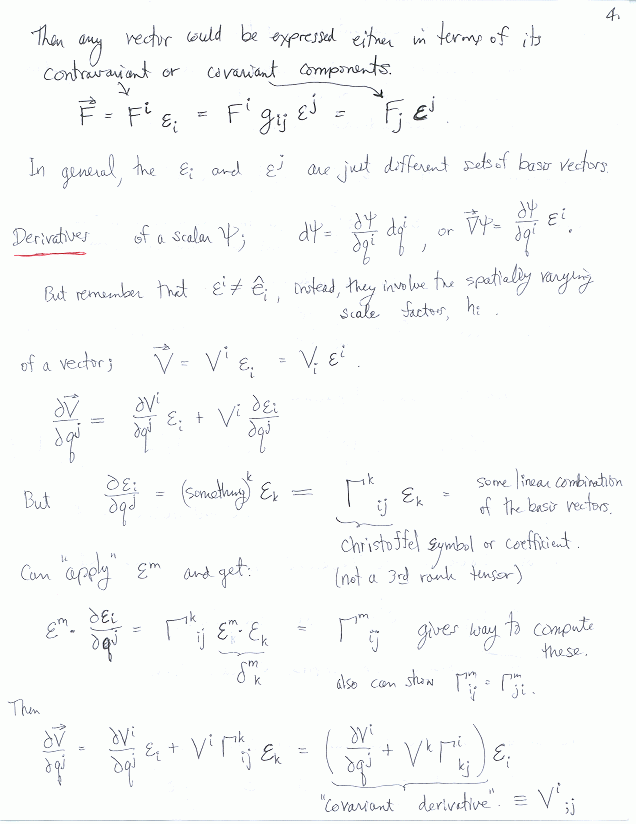 4.
Then any vector could be expressed either in terms of its
contravariant or covariant components.
F⃗ = Fⁱ εᵢ = Fⁱ gᵢⱼ εʲ = Fⱼ εʲ.
In general, the εᵢ and εʲ are just different sets of basis vectors.
Derivatives of a scalar Ψ; dΨ = ∂Ψ/∂qⁱ dqⁱ, or ∇⃗Ψ = ∂Ψ/∂qⁱ εⁱ.
But remember that εⁱ ≠ êᵢ, instead, they involve the spatially varying
scale factors, hᵢ.
of a vector; V⃗ = Vⁱ εᵢ = Vᵢ εⁱ.
∂V⃗/∂qʲ = ∂Vⁱ/∂qʲ εᵢ + Vⁱ ∂εᵢ/∂qʲ
But ∂εᵢ/∂qʲ = (something)ᵏ εₖ = Γᵏᵢⱼ εₖ = some linear combination
of the basis vectors.
Christoffel symbol or coefficient.
(not a 3rd rank tensor)
Can "apply" εᵐ and get:
εᵐ · ∂εᵢ/∂qʲ = Γᵏᵢⱼ εᵐ · εₖ = Γᵐᵢⱼ gives way to compute
these.
δᵐₖ
also can show Γᵐᵢⱼ = Γᵐⱼᵢ.
Then
∂V⃗/∂qʲ = ∂Vⁱ/∂qʲ εᵢ + Vⁱ Γᵏᵢⱼ εₖ = (∂Vⁱ/∂qʲ + Vᵏ Γⁱₖⱼ) εᵢ
"covariant derivative" ≡ Vⁱ;ⱼ